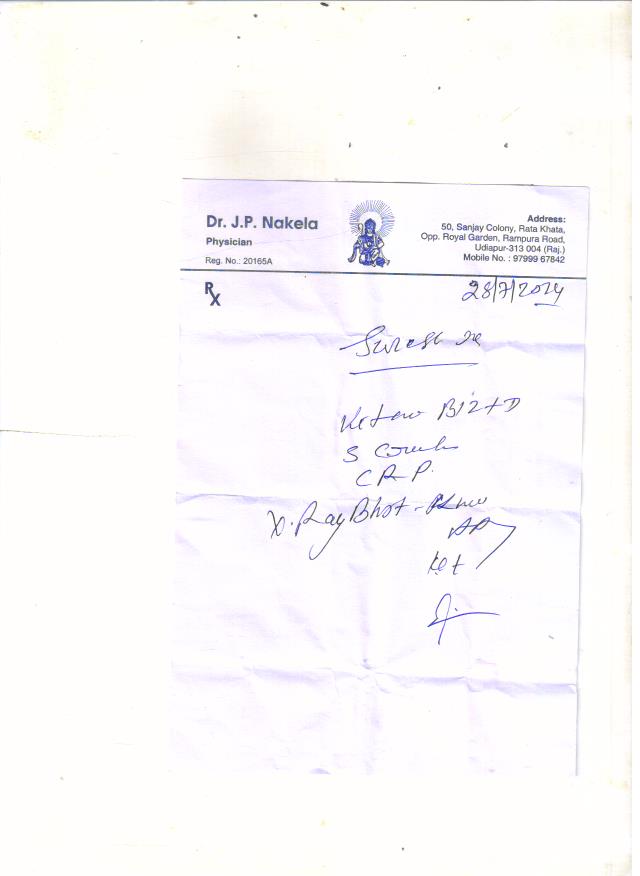 Dr. J.P. Nakela
Physician
Reg. No.: 20165A
Address:
50, Sanjay Colony, Rata Khata,
Opp. Royal Garden, Rampura Road,
Udiapur-313 004 (Raj.)
Mobile No. : 97999 67842
Rx
28/7/2024
Suresh
B12 + D
S
CRP.
X. Ray Both - Knee
AP